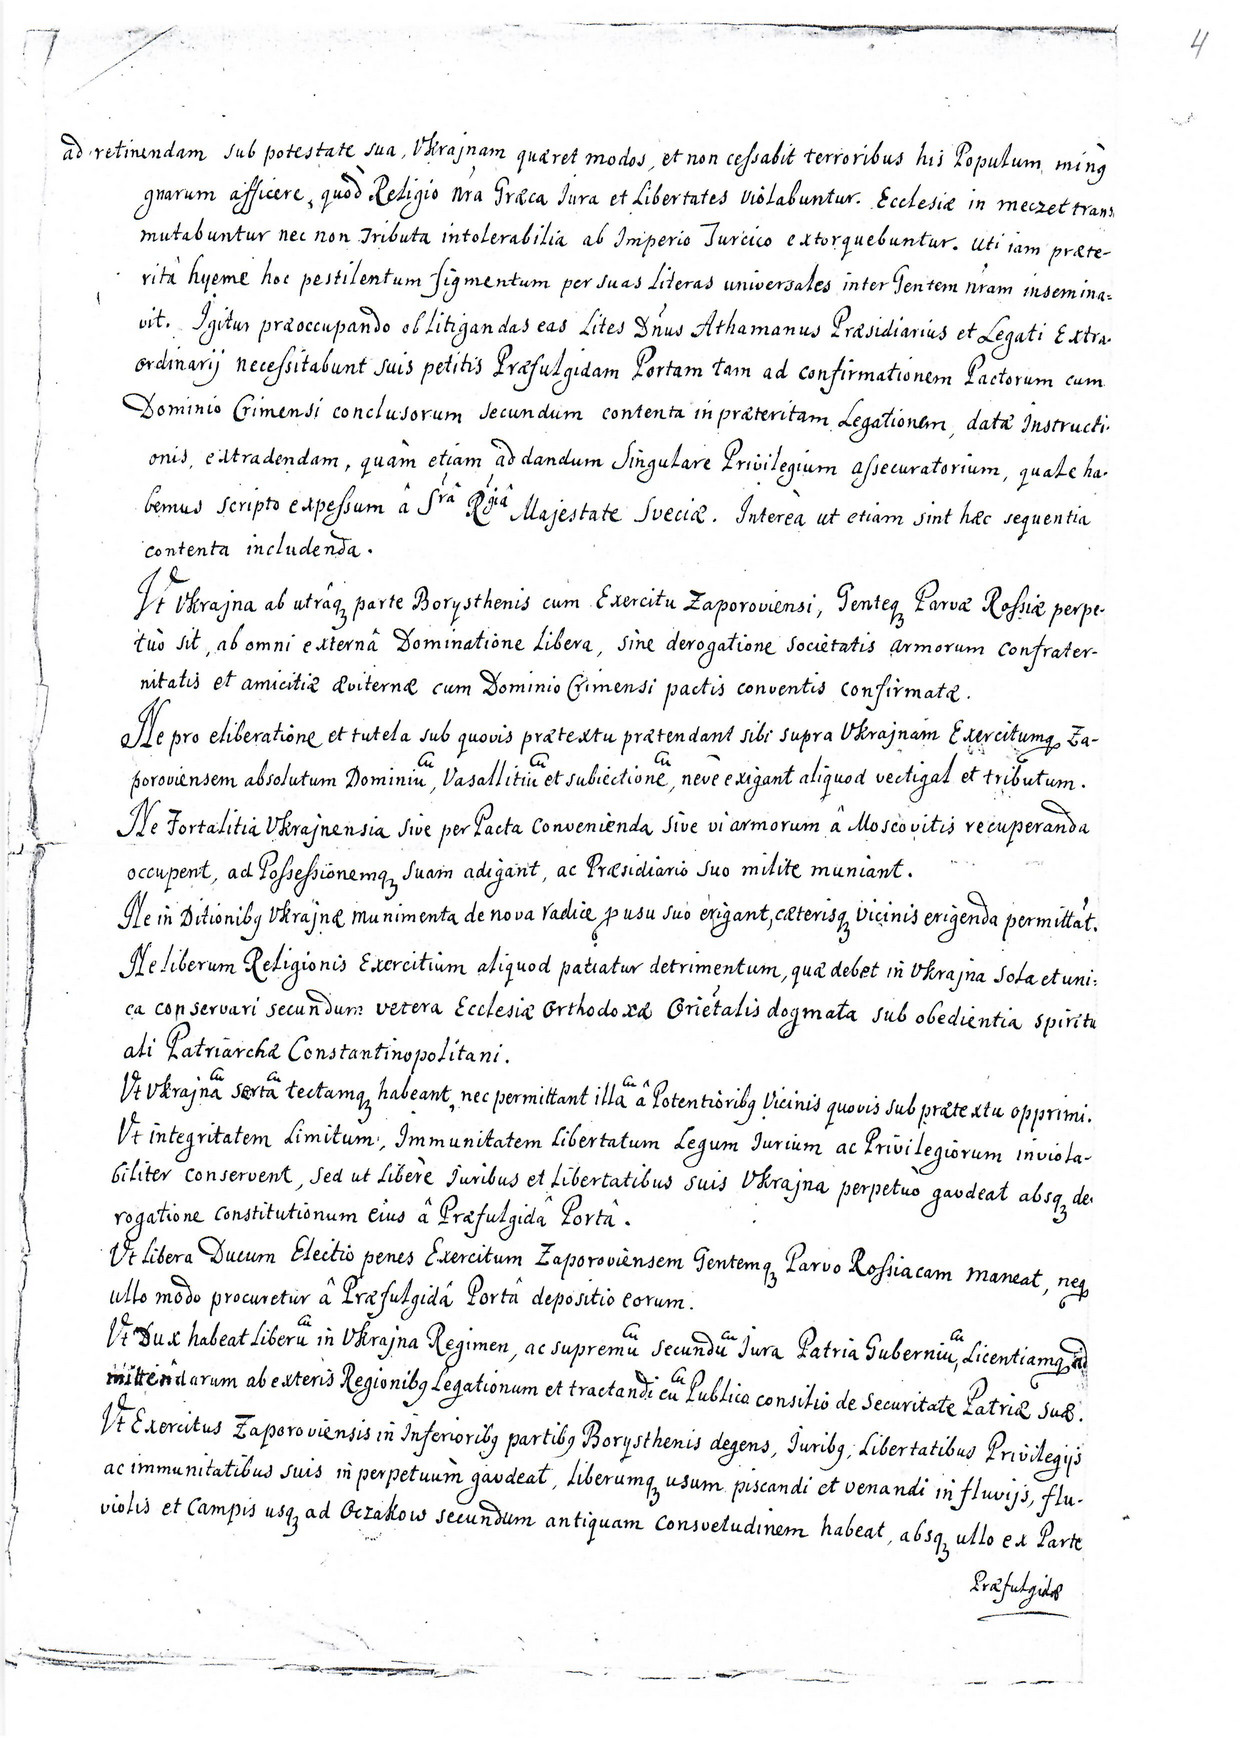 4
ad retinendam sub potestate sua, Vkrajnam quæret modos, et non ceſsabit terroribus his Populum
gnarum afficere, quod Religio nr̃a Græca Jura et Libertates violabuntur. Ecclesiæ in meczet trans,
mutabuntur nec non Tributa intolerabilia ab Imperio Turcico extorquebuntur. Uti iam præte-
ritâ hyeme hoc pestilentum figmentum per suas Literas universales inter Gentem nr̃am insemina-
vit. Igitur præoccupando ob litigandas eas Lites Dn̄us Athamanus Præsidiarius et Legati Extra-
ordinarij neceſsitabunt suis petitis Præfulgidam Portam tam ad confirmationem Pactorum cum
Dominio Crimensi conclusorum secundum contenta in præteritam Legationem, datæ Instructi-
onis, extradendam, quàm etiam ad dandum singulare Privilegium aſsecuratorium, quale ha-
bemus scripto expeſsum â Srâ Rgiâ Majestate Sveciæ. Interèa ut etiam sint hæc sequentia
contenta includenda.
Vt Vkrajna ab utrâqꝫ parte Borysthenis cum Exercitu Zaporoviensi, Genteqꝫ Parvæ Roſsiæ perpe-
tuò sit, ab omni externâ Dominatione Libera, sine derogatione societatis armorum confrater-
nitatis et amicitiæ æviternæ cum Dominio Crimensi pactis conventis confirmatæ.
Ne pro eliberatione et tutela sub quovis prætextu prætendant sibi supra Vkrajnam Exercitumqꝫ Za-
poroviensem absolutum Dominiũ, Vasallitiũ et subiectionẽ, nevè exigant aliquod vectigal et tributum.
Ne Fortalitia Vkrajnensia sive per Pacta convenienda sive vi armorum â Moscovitis recuperanda
occupent, ad Poſseſsionemqꝫ suam adigant, ac Præsidiario suo milite muniant.
Ne in Ditionibꝯ Vkrajnæ munimenta de nova radice ꝓ usu suo erigant, cæterisqꝫ vicinis erigenda permittãt.
Ne liberum Religionis Exercitium aliquod patiatur detrimentum, quæ debet in Vkrajna sola et uni-
ca conservari secundum vetera Ecclesiæ Orthodoxæ Oriẽtalis dogmata sub obedientia spiritu
ali Patriarchæ Constantinopolitani.
Vt Vkrajnã sartã tectamqꝫ habeant, nec permittant illã â Potentioribꝯ Vicinis quovis sub prætextu opprimi.
Vt integritatem Limitum, Immunitatem Libertatum Legum Jurium ac Privilegiorum inviola-
biliter conservent, sed ut Liberè Juribus et Libertatibus suis Vkrajna perpetuò gavdeat absqꝫ de-
rogatione constitutionum eius â Præfulgidâ Portâ.
Vt libera Ducum Electio penes Exercitum Zaporoviensem Gentemqꝫ Parvo Roſsiacam maneat, neqꝫ
ullo modo procuretur â Præfulgidâ Portâ depositio eorum.
Vt Dux habeat Liberũ in Vkrajna Regimen, ac supremũ secundũ Jura Patria Guberniũ, Licentiamqꝫ ad
mittendarum ab exteris Regionibꝯ Legationum et tractandi cũ Publico consilio de Securitate Patriæ suæ.
Vt Exercitus Zaporoviensis in Inferioribꝯ partibꝯ Borysthenis degens, Juribꝯ, Libertatibus Privilegijs
ac immunitatibus suis in perpetuum gavdeat, liberumqꝫ usum piscandi et venandi in fluvijs, flu-
violis et Campis usqꝫ ad Oczakow secundum antiquam consvetudinem habeat, absqꝫ ullo ex Parte
Præfulgidæ